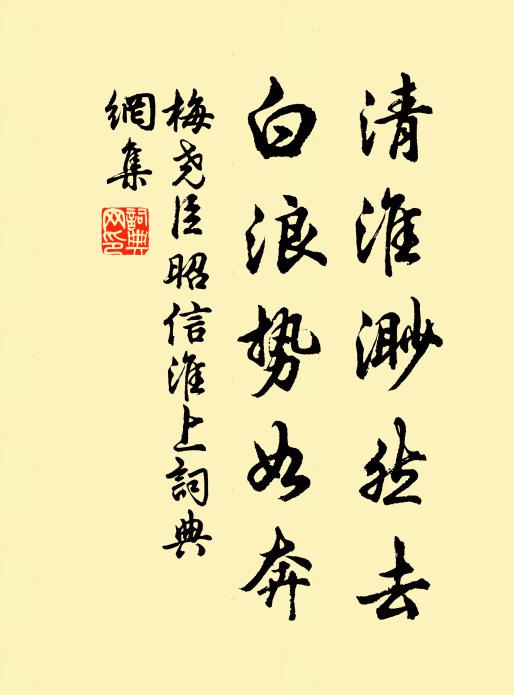 清淮渺然去
白浪势如奔
梅尧臣昭信淮上詞典
網集
詞典網印